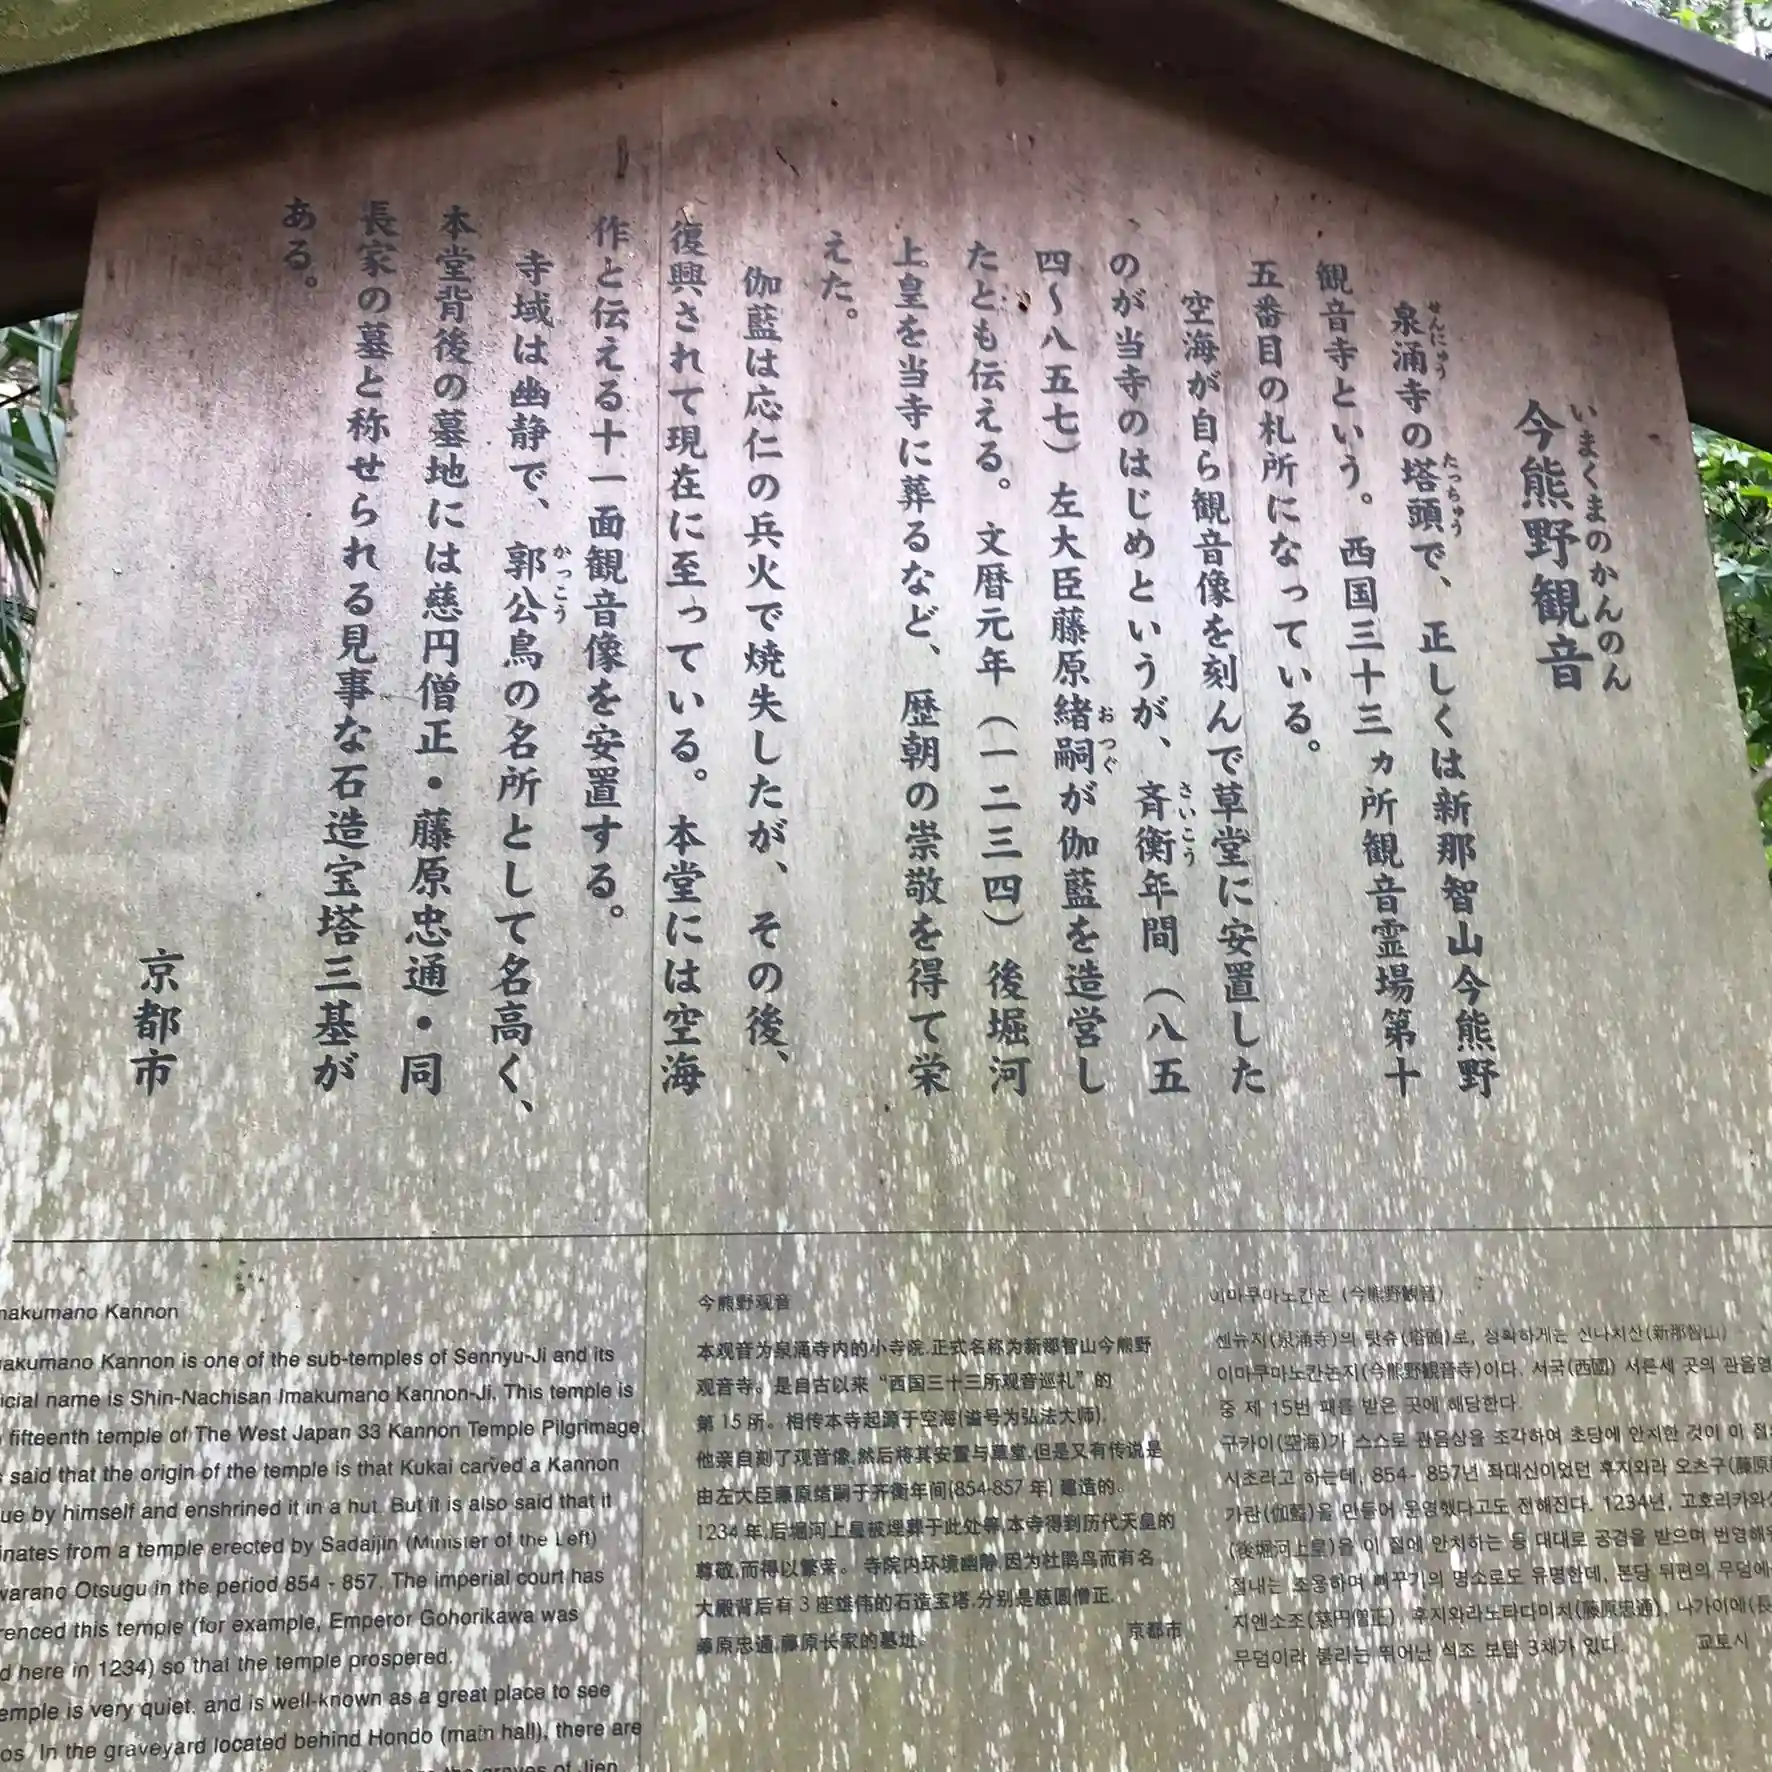 いまくまのかんのん
今熊野観音
せんにゅう たっちゅう
泉涌寺の塔頭で、正しくは新那智山今熊野
観音寺という。西国三十三ヵ所観音霊場第十
五番目の札所になっている。
空海が自ら観音像を刻んで草堂に安置した
さいこう
のが当寺のはじめというが、斉衡年間（八五
おつぐ
四～八五七）左大臣藤原緒嗣が伽藍を造営し
たとも伝える。文暦元年（一二三四）後堀河
上皇を当寺に葬るなど、歴朝の崇敬を得て栄
えた。
伽藍は応仁の兵火で焼失したが、その後、
復興されて現在に至っている。本堂には空海
作と伝える十一面観音像を安置する。
かっこう
寺域は幽静で、郭公鳥の名所として名高く、
本堂背後の墓地には慈円僧正・藤原忠通・同
長家の墓と称せられる見事な石造宝塔三基が
ある。
京都市
makumano Kannon
akumano Kannon is one of the sub-temples of Sennyu-Ji and its
icial name is Shin-Nachisan Imakumano Kannon-Ji, This temple is
fifteenth temple of The West Japan 33 Kannon Temple Pilgrimage,
said that the origin of the temple is that Kukai carved a Kannon
ue by himself and enshrined it in a hut. But it is also said that it
inates from a temple erected by Sadaijin (Minister of the Left)
warano Otsugu in the period 854 - 857. The imperial court has
renced this temple (for example, Emperor Gohorikawa was
d here in 1234) so that the temple prospered.
emple is very quiet, and is well-known as a great place to see
os. In the graveyard located behind Hondo (main hall), there are
the graves of Jien
今熊野观音
本观音为泉涌寺内的小寺院.正式名称为新那智山今熊野
观音寺。是自古以来“西国三十三所观音巡礼”的
第15所。相传本寺起源于空海(谥号为弘法大师).
他亲自刻了观音像,然后将其安置与草堂.但是又有传说是
由左大臣藤原绪嗣于齐衡年间(854-857年)建造的。
1234年,后堀河上皇被埋葬于此处等,本寺得到历代天皇的
尊敬,而得以繁荣。寺院内环境幽静,因为杜鹃鸟而有名
大殿背后有3座雄伟的石造宝塔.分别是慈圆僧正.
藤原忠通,藤原长家的墓址。
京都市
이마쿠마노칸논 (今熊野観音)
센뉴지(泉涌寺)의 탓츄(塔頭)로, 정확하게는 신나치산(新那智山)
이마쿠마노칸논지(今熊野観音寺)이다. 서국(西國) 서른세 곳의 관음영
중 제 15번 패를 받은 곳에 해당한다.
구카이(空海)가 스스로 관음상을 조각하여 초당에 안치한 것이 이 절
시초라고 하는데, 854- 857년 좌대신이었던 후지와라 오츠구(藤原
가란(伽藍)을 만들어 운영했다고도 전해진다. 1234년, 고호리카와
(後堀河上皇)을 이 절에 안치하는 등 대대로 공경을 받으며 번영해
절내는 조용하며 뻐꾸기의 명소로도 유명한데, 본당 뒤편의 무덤에
지엔소조(慈円僧正), 후지와라노타다미치(藤原忠通), 나가이에(長
무덤이라 불리는 뛰어난 석조 보탑 3채가 있다.
교토시